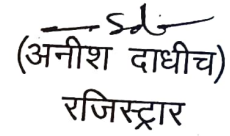 Sd/-
(अनीश दाधीच)
रजिस्ट्रार